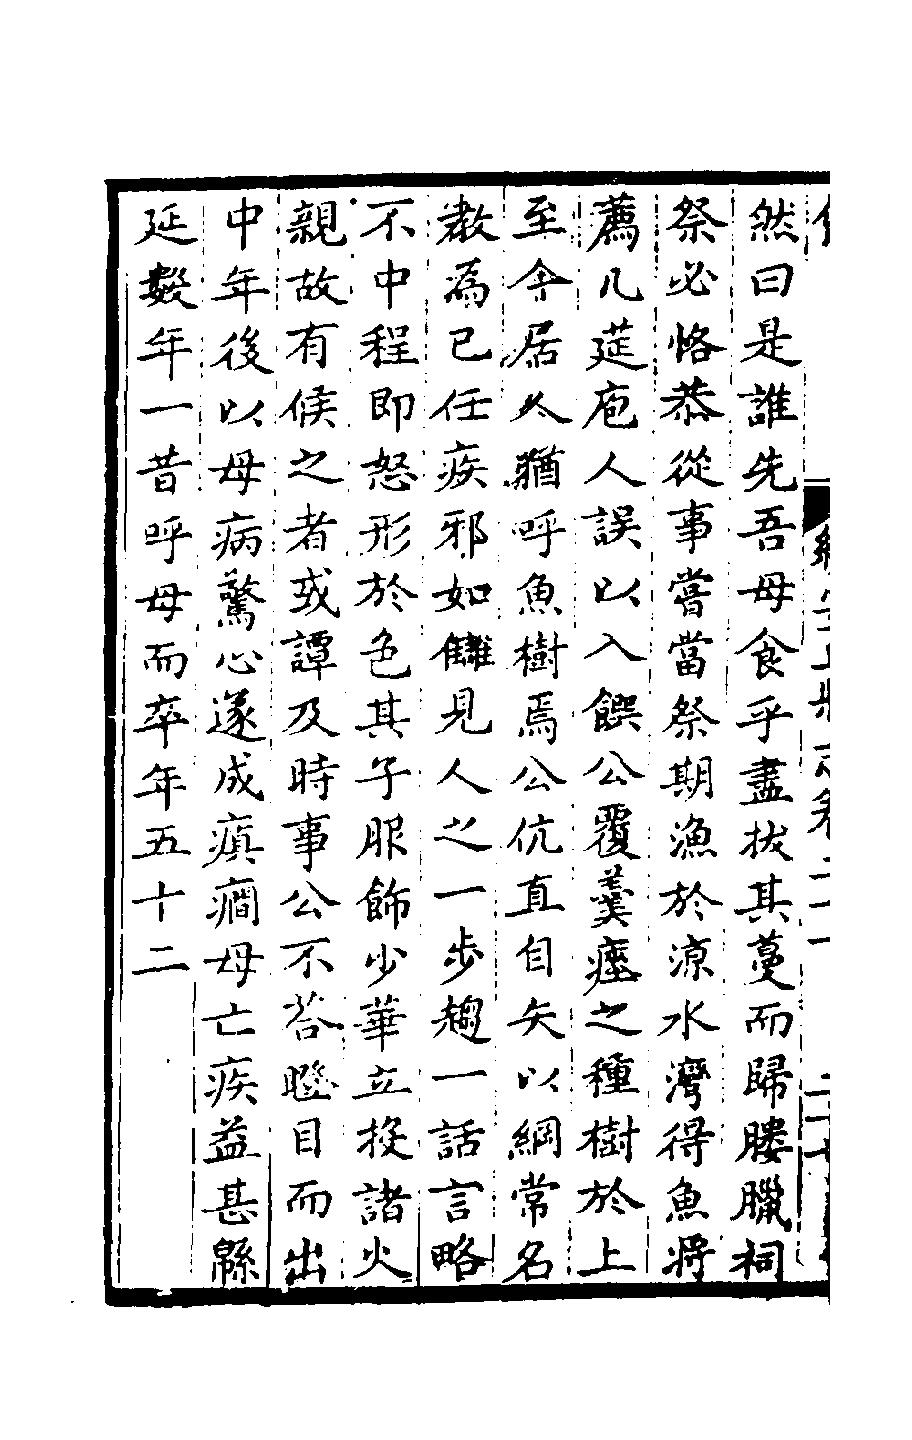 然曰是誰先吾母食乎盡拔其蔓而歸膢臘祠
祭必恪恭從事嘗當祭期漁於涼水灣得魚將
薦几筵庖人誤以入饌公覆羹瘞之種樹於上
至今居人猶呼魚樹焉公伉直自矢以綱常名
教為己任疾邪如讎見人之一步趨一話言略
不中程即怒形於色其子服飾少華立投諸火
親故有候之者或譚及時事公不荅瞪目而出
中年後以母病驚心遂成瘨癇母亡疾益甚緜
延數年一昔呼母而卒年五十二